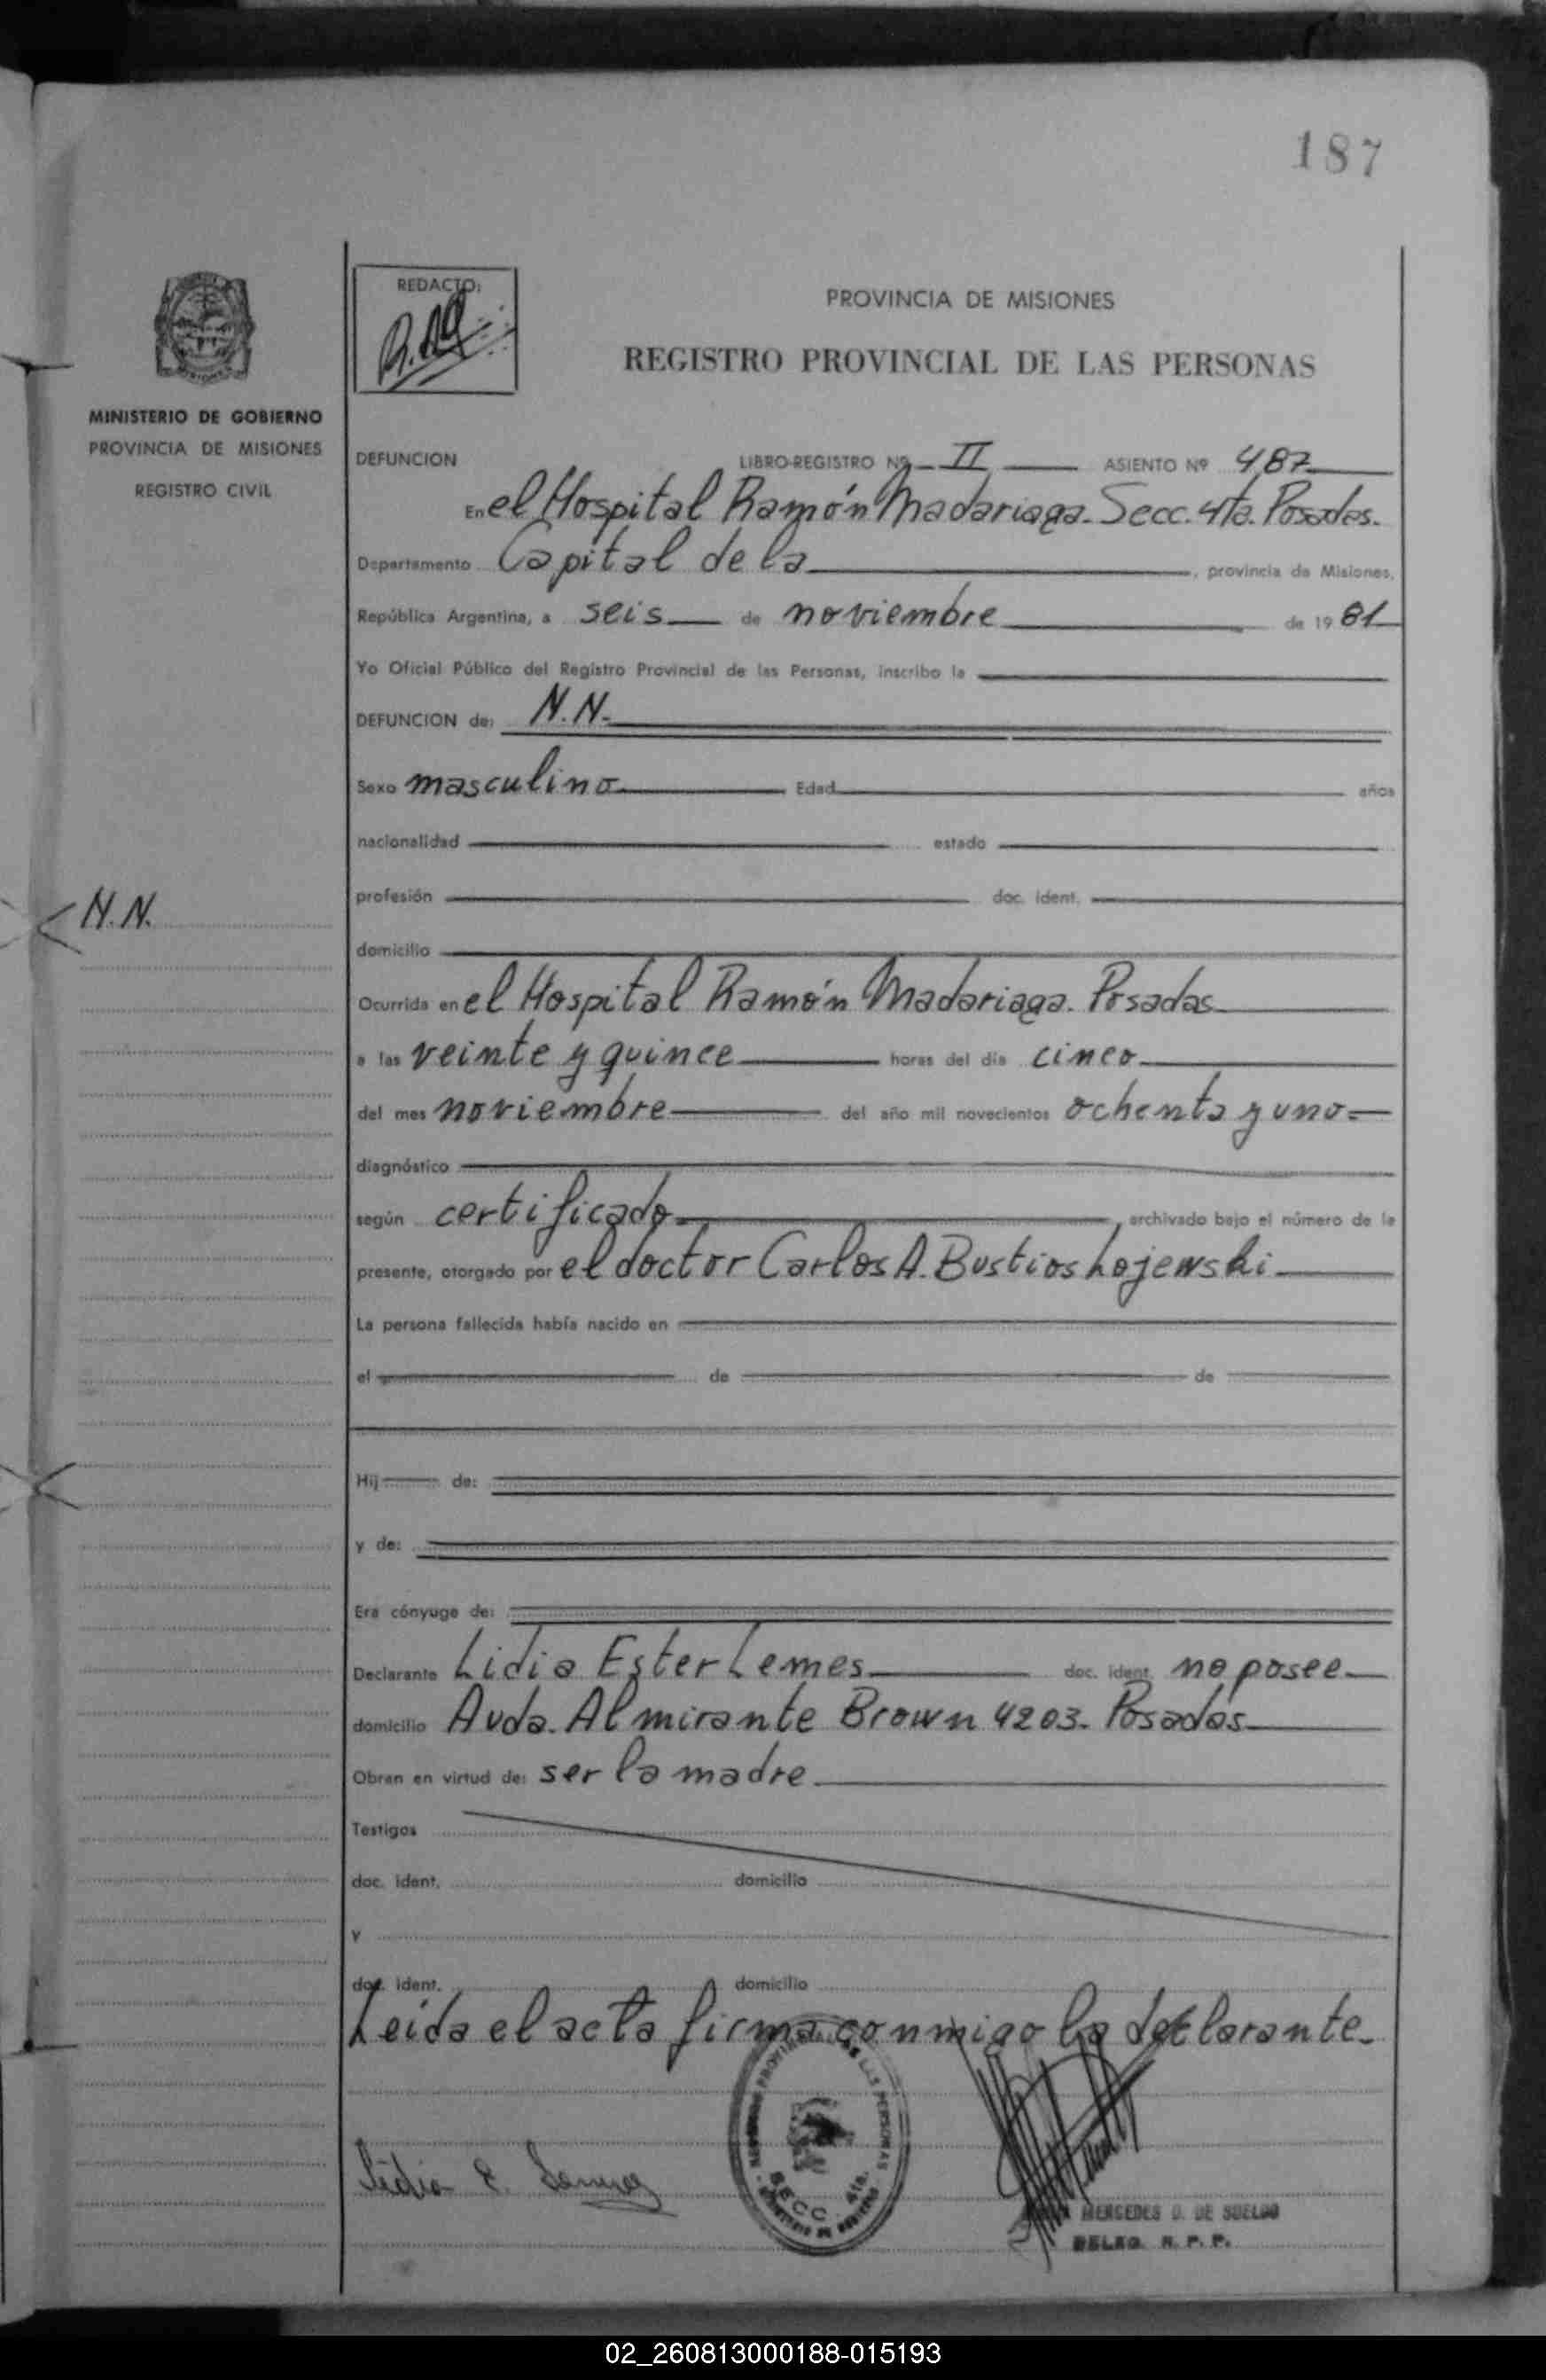 187
REDACTO:
PROVINCIA DE MISIONES
REGISTRO PROVINCIAL DE LAS PERSONAS
MINISTERIO DE GOBIERNO
PROVINCIA DE MISIONES
REGISTRO CIVIL
DEFUNCION LIBRO-REGISTRO Nº II ASIENTO Nº 487
En el Hospital Ramón Madariaga. Secc. 4ta. Posadas.
Departamento Capital de la, provincia de Misiones,
República Argentina, a seis de noviembre de 1981
Yo Oficial Público del Registro Provincial de las Personas, inscribo la
DEFUNCION de: N.N.
Sexo masculino Edad años
nacionalidad estado
N.N.
profesión doc. ident.
domicilio
Ocurrida en el Hospital Ramón Madariaga. Posadas
a las veinte y quince horas del día cinco
del mes noviembre del año mil novecientos ochenta y uno
diagnóstico
según certificado, archivado bajo el número de la
presente, otorgado por el doctor Carlos A. Bustios Lojewski
La persona fallecida había nacido en
el de de
Hij de:
y de:
Era cónyuge de:
Declarante Lidia Ester Lemes doc. ident. no posee
domicilio Avda. Almirante Brown 4203. Posadas
Obran en virtud de: ser la madre
Testigos
doc. ident. domicilio
y
doc. ident. domicilio
Leída el acta firma conmigo la declarante.
Lidia E. Lemes
SECC. 4ta.
MERCEDES D. DE SUELDO
DELEG. R. P. P.
02_260813000188-015193